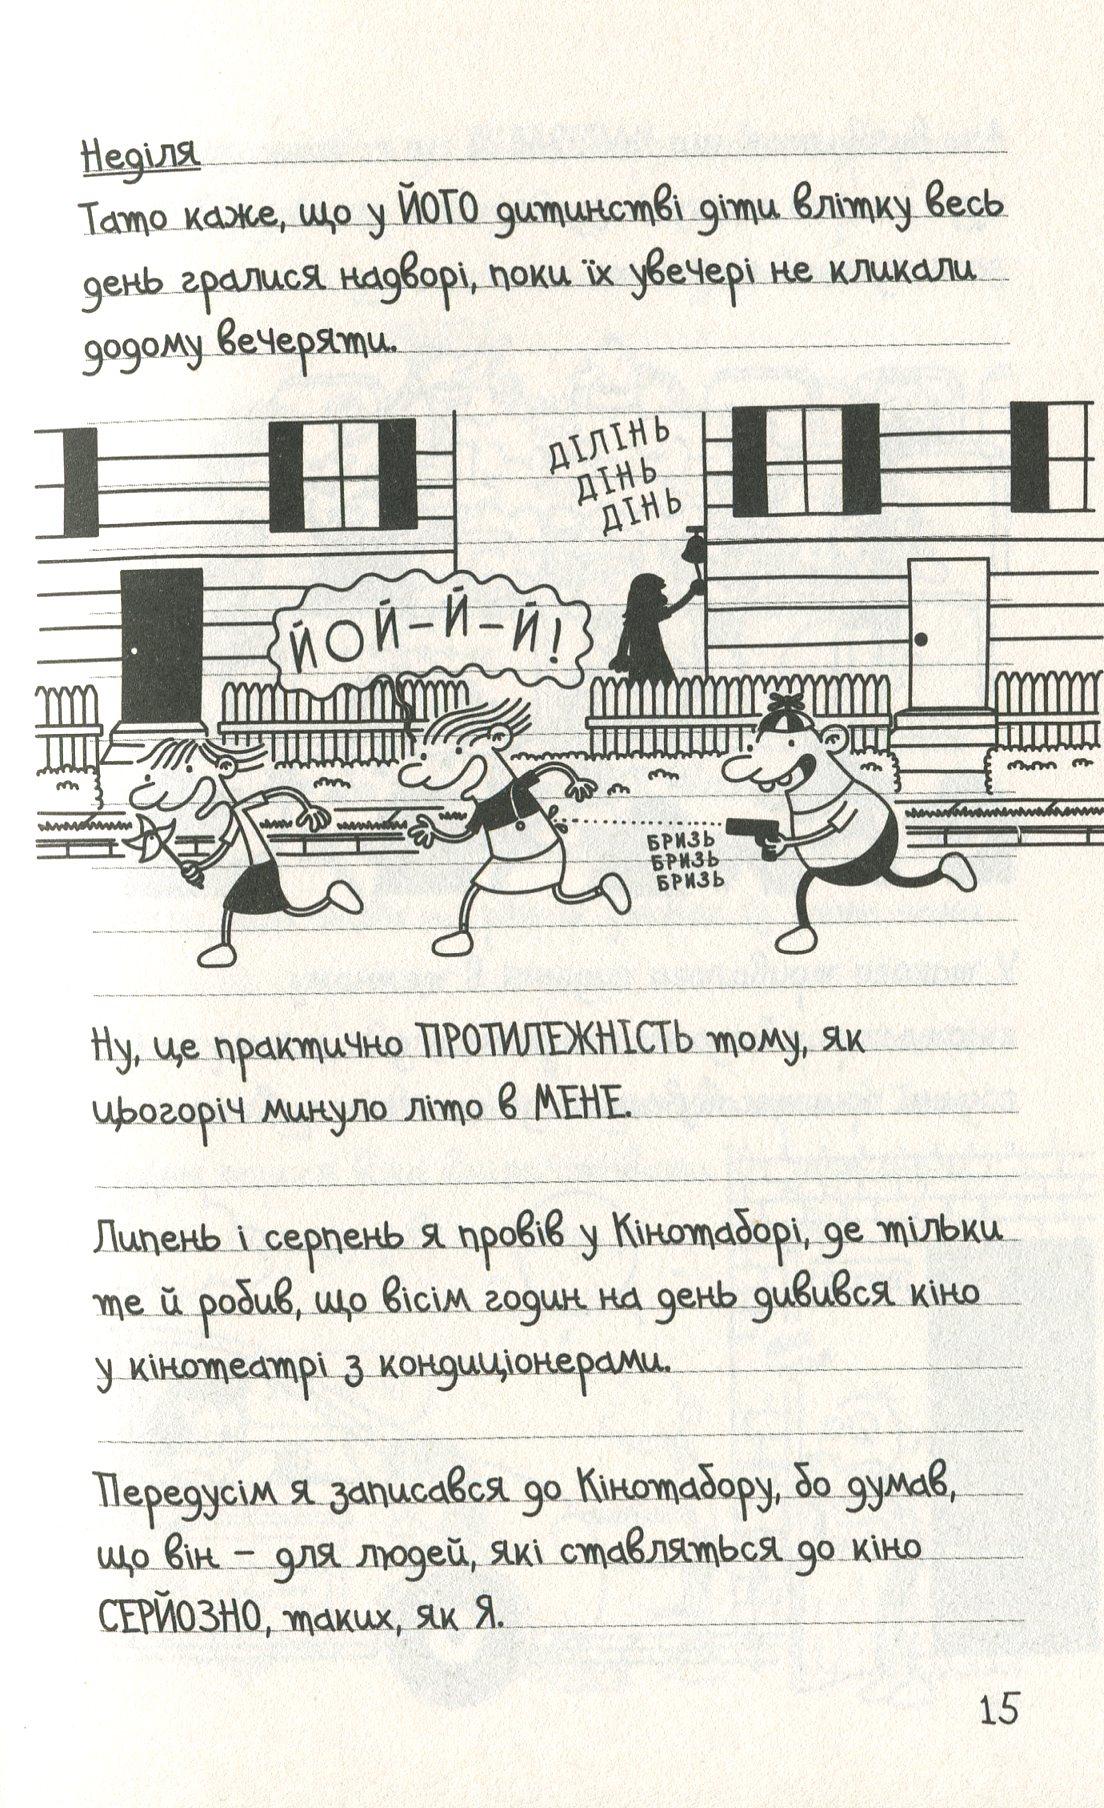 Неділя
Тато каже, що у ЙОГО дитинстві діти влітку весь
день гралися надворі, поки їх увечері не кликали
додому вечеряти.
ДІЛІНЬ
ДІНЬ
ДІНЬ
ЙОЙ-Й-Й!
БРИЗЬ
БРИЗЬ
БРИЗЬ
Ну, це практично ПРОТИЛЕЖНІСТЬ тому, як
цьогоріч минуло літо в МЕНЕ.
Липень і серпень я провів у Кінотаборі, де тільки
те й робив, що вісім годин на день дивився кіно
у кінотеатрі з кондиціонерами.
Передусім я записався до Кінотабору, бо думав,
що він – для людей, які ставляться до кіно
СЕРЙОЗНО, таких, як Я.
15